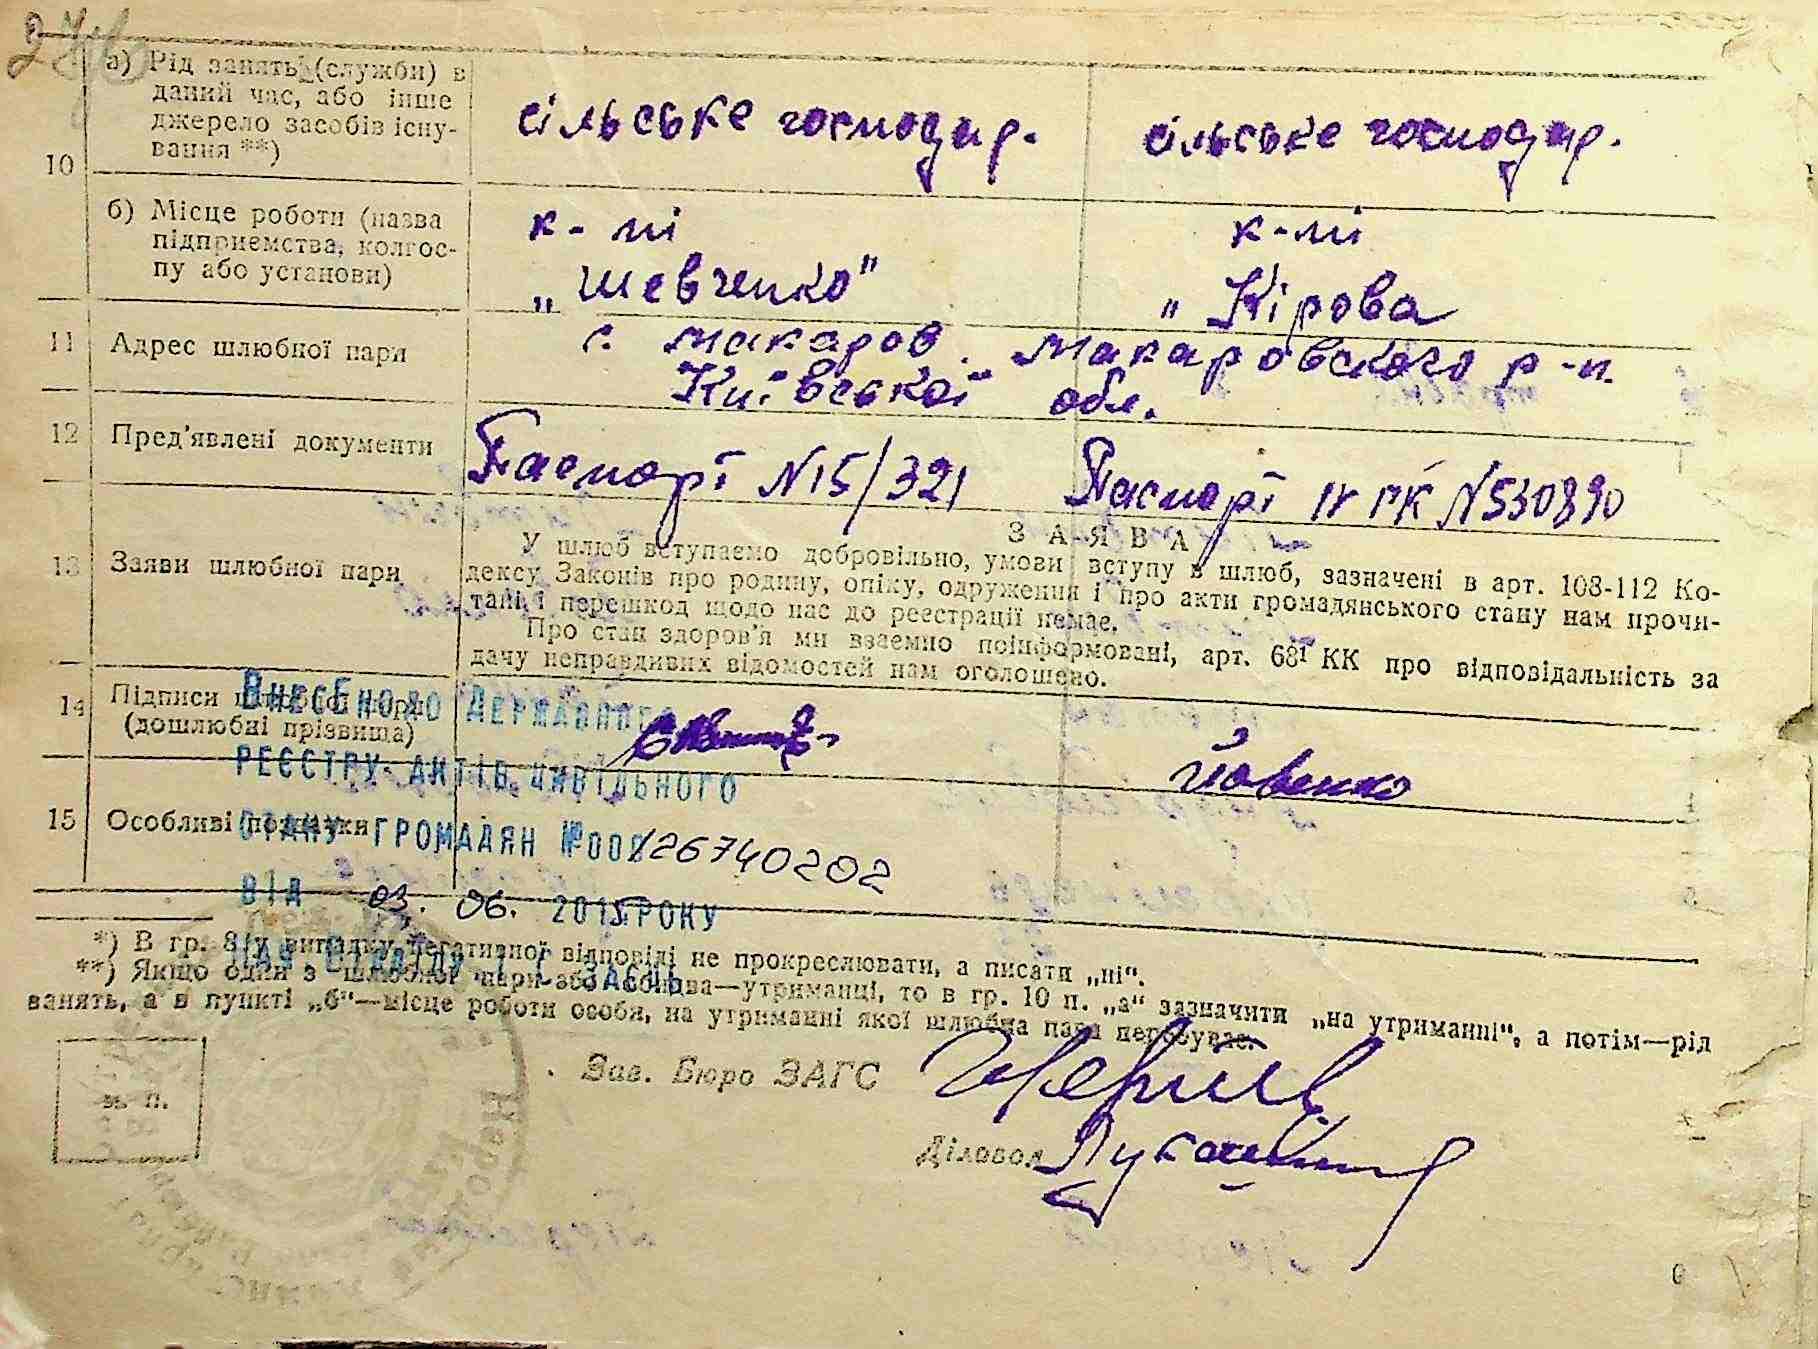 а) Рід занять (служби) в
даний час, або інше
джерело засобів існу-
вання **)
сільське господар.
сільське господар.
10
б) Місце роботи (назва
підприємства, колгос-
пу або установи)
к-пі
„Шевченко"
к-пі
„Кірова
11
Адрес шлюбної пари
с. Макаров. Макаровского р-н.
Київської обл.
12
Пред'явлені документи
Паспорт N15/321
Паспорт IV РК N530890
13
Заяви шлюбної пари
ЗАЯВА
У шлюб вступаємо добровільно, умови вступу в шлюб, зазначені в арт. 108-112 Ко-
дексу Законів про родину, опіку, одруження і про акти громадянського стану нам прочи-
тані, і перешкод щодо нас до реєстрації немає.
Про стан здоров'я ми взаємно поінформовані, арт. 68¹ КК про відповідальність за
дачу неправдивих відомостей нам оголошено.
14
Підписи шлюбної пари
(дошлюбні прізвища)
Йовенко
15
Особливі
Внесено до Державного
реєстру актів цивільного
стану громадян №00126740202
від 03. 06. 2015 року
*) В гр. 8 у випадку негативної відповіді не прокреслювати, а писати „ні".
**) Якщо один з шлюбної пари або обидва—утриманці, то в гр. 10 п. „а" зазначити „на утриманні", а потім—рід
занять, а в пункті „б"—місце роботи особи, на утриманні якої шлюбна пара перебуває.
м. п.
Зав. Бюро ЗАГС
Діловод